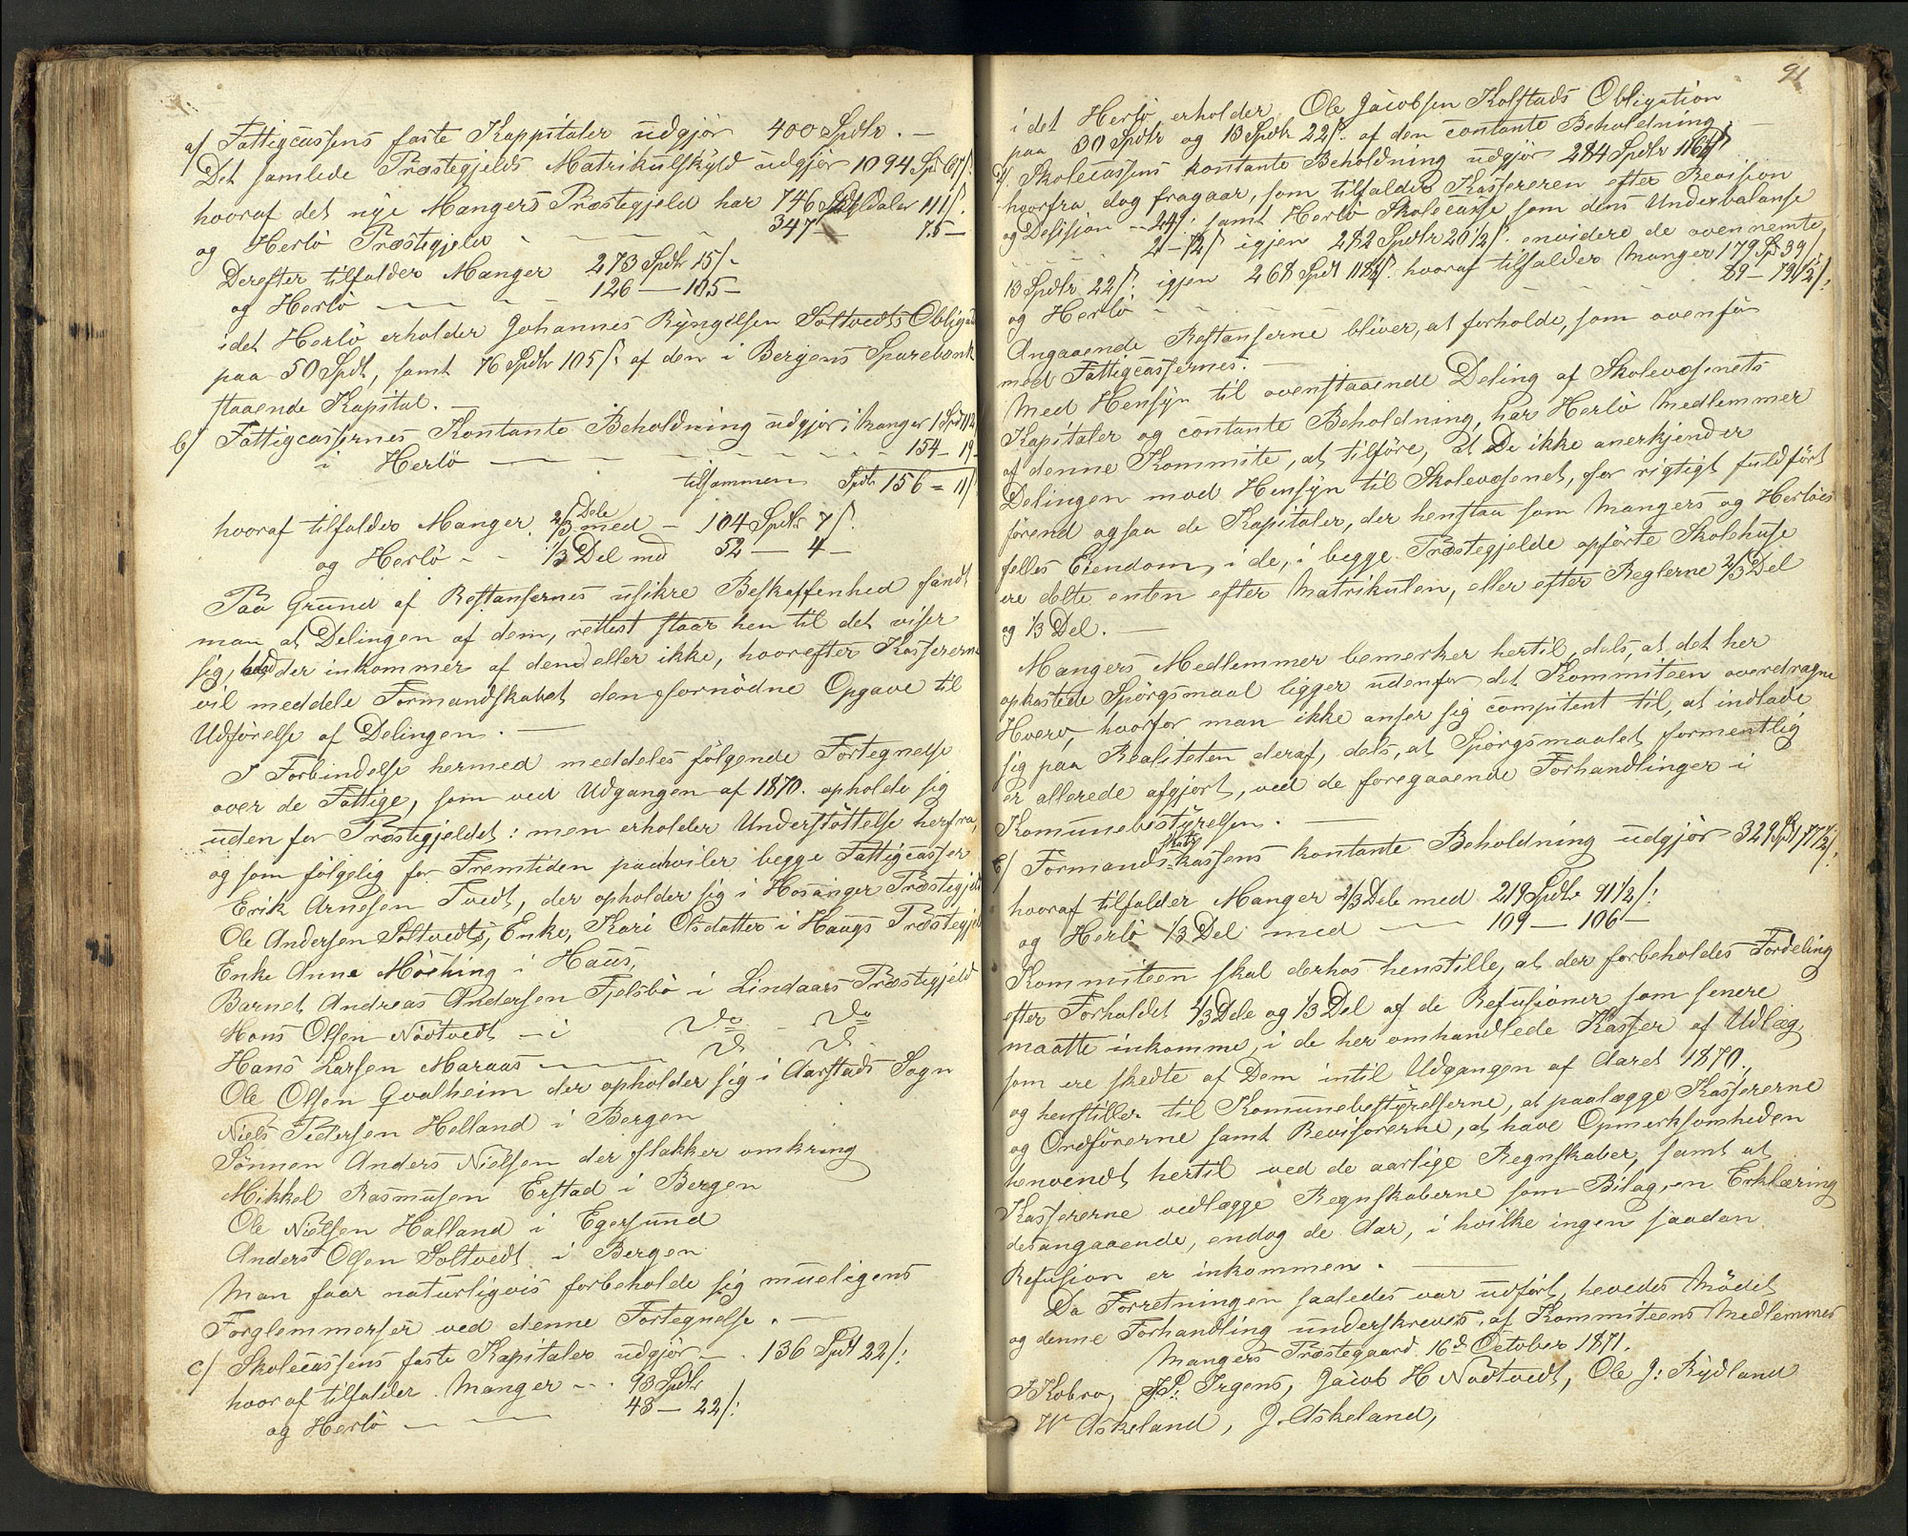 a/ Fattigcassens faste Kappitaler udgjør 400 Spdlr. —
Det samlede Præstegjelds Matrikulskyld udgjør 1094 Spd 67/.
hvoraf det nye Mangers Præstegjeld har 746 Spesidaler 111/.
og Herlö Præstegjeld - - - - 347 — 75 —
Derefter tilfalder Manger 273 Spdlr 15/-
og Herlö — — - - 126 — 105 —
idet Herlö erholder Johannes Ryngelsen Soltvedts Obligat
paa 50 Spdl, samt 76 Spdlr 105/: af den i Bergens Sparebank
staaende Kapital. —
b/ Fattigcassernes Kontante Beholdning udgjør i Manger 1 Spd 112
i Herlö — — - - - - - - 154 - 19 -
tilsammen Spdlr 156 = 11/
hvoraf tilfalder Manger 2/3 Dele med — 104 Spdlr 7/.
og Herlö - - 1/3 Del med 52 — 4 —
Paa Grund af Restansernes usikre Beskaffenhed fandt
man at Delingen af dem, rettest staar hen til det viser
sig, hvad der inkommer af dem eller ikke, hvorefter Kassererne
vil meddele Formandskabet den fornödne Opgave til
Udförelse af Delingen. —
I Forbindelse hermed meddeles fölgende Fortegnelse
over de Fattige, som ved Udgangen af 1870. opholde sig
uden for Præstegjeldet: men erholder Understöttelse herfra,
og som fölgelig for Fremtiden paahviler begge Fattigcasser
Erik Arnesen Tvedt, der opholder sig i Hosanger Præstegjeld
Ole Andersen Soltvedts, Enke, Kari Olsdatter i Haugs Præstegjeld
Enke Anne Möching i Haus,
Barnet Andreas Andersen Fjelsbö i Lindaars Præstegjeld
Mons Olsen Nodtvedt — i Do - Do
Hans Larsen Maraas — — D D
Ole Olsen Qvalheim der opholder sig i Aarstads Sogn
Niels Pedersen Helland i Bergen
Sönnen Anders Nielsen der flakker omkring
Mikkel Rasmusen Erstad i Bergen
Ole Nielsen Halland i Egersund
Anders Olsen Soltvedt i Bergen
Man faar naturligvis forbeholde sig mueligens
Forglemmerser ved denne Fortegnelse. —
c/ Skolecassens faste Kapitaler udgjør — . 136 Spdl 22/:
hvoraf tilfalder Manger - - . 93 Spdlr
og Herlö — — — 43 — 22/:
91
idet Herlö erholder Ole Jacobsen Kolstads Obligation
paa 30 Spdlr og 13 Spdlr 22/. af den contante Beholdning. —
d/. Skolecassens kontante Beholdning udgjør 284 Spdlr 116½/
hvorfra dog fragaar, som tilfalder Kassereren efter Revision
og Desisjon — 24/: samt Herlö Skolecasse, som dens Underbalanse
- - - - 2 - 12/ igjen 282 Spdlr 20½/. envidere de ovennemte,
13 Spdlr 22/: igjen 268 Spdl 118½/: hvoraf tilfalder Manger 179 Sp 39/
og Herlö - - - - - - 89 — 79½/.
Angaaende Restanserne bliver, at forholde, som ovenfor
med Fattigcassernes. —
Med Hensyn til ovenstaaende Deling af Skolevesenets
Kapitaler og contante Beholdning, har Herlö Medlemmer
af denne Kommite, at tilföre, at De ikke anerkjender
Delingen med Hensyn til Skolevesenet, for rigtigt fuldfört
förend ogsaa de Kapitaler, der henstaa som Mangers og Herlöes
felles Eiendom, i de, i begge Præstegjelde opförte Skolehuse
ere delte enten efter Matrikulen, eller efter Reglerne 2/3 Del
og 1/3 Del. —
Mangers Medlemmer bemerker hertil, dels, at det her
opkastede Spörgsmaal ligger udenfor det Kommiteen overdragne
Hverv, hvorfor man ikke anser sig competent til, at indlade
sig paa Realiteten deraf, dels, at Spörgsmaalet formentlig
er allerede afgjort, ved de foregaaende Forhandlinger i
Komunebestyrelsen. —
e/ Formandskatskassens kontante Beholdning udgjør 329 Spdl 77½/:
hvoraf tilfalder Manger 2/3 Dele med 219 Spdlr 91½/:
og Herlö 1/3 Del med — — 109 — 106 —
Kommiteen skal derhos henstille, at der forbeholdes Fordeling
efter Forholdet 2/3 Dele og 1/3 Del af de Refusioner, som senere
maatte inkomme, i de her omhandlede Kasser af Udlæg,
som ere skedte af Dem intil Udgangen af Aaret 1870.,
og henstiller til Komunebestyrelserne, at paalægge Kassererne
og Ordförerne samt Revisorerne, at have Opmerksomheden
henvendt hertil ved de aarlige Regnskaber, samt at
Kassererne vedlægge Regnskaberne som Bilag, en Erklæring
desangaaende, endog de Aar, i hvilke ingen saadan
Refusion er inkommen. —
Da Forretningen saaledes var udfört, hevedes Mödet
og denne Forhandling underskreves, af Kommiteens Medlemmer
Mangers Præstegaard 16d October 1871.
J Kobro, J S: Irgens, Jacob H Nodtvedt, Ole J: Rydland
W Askeland, J. Askeland,